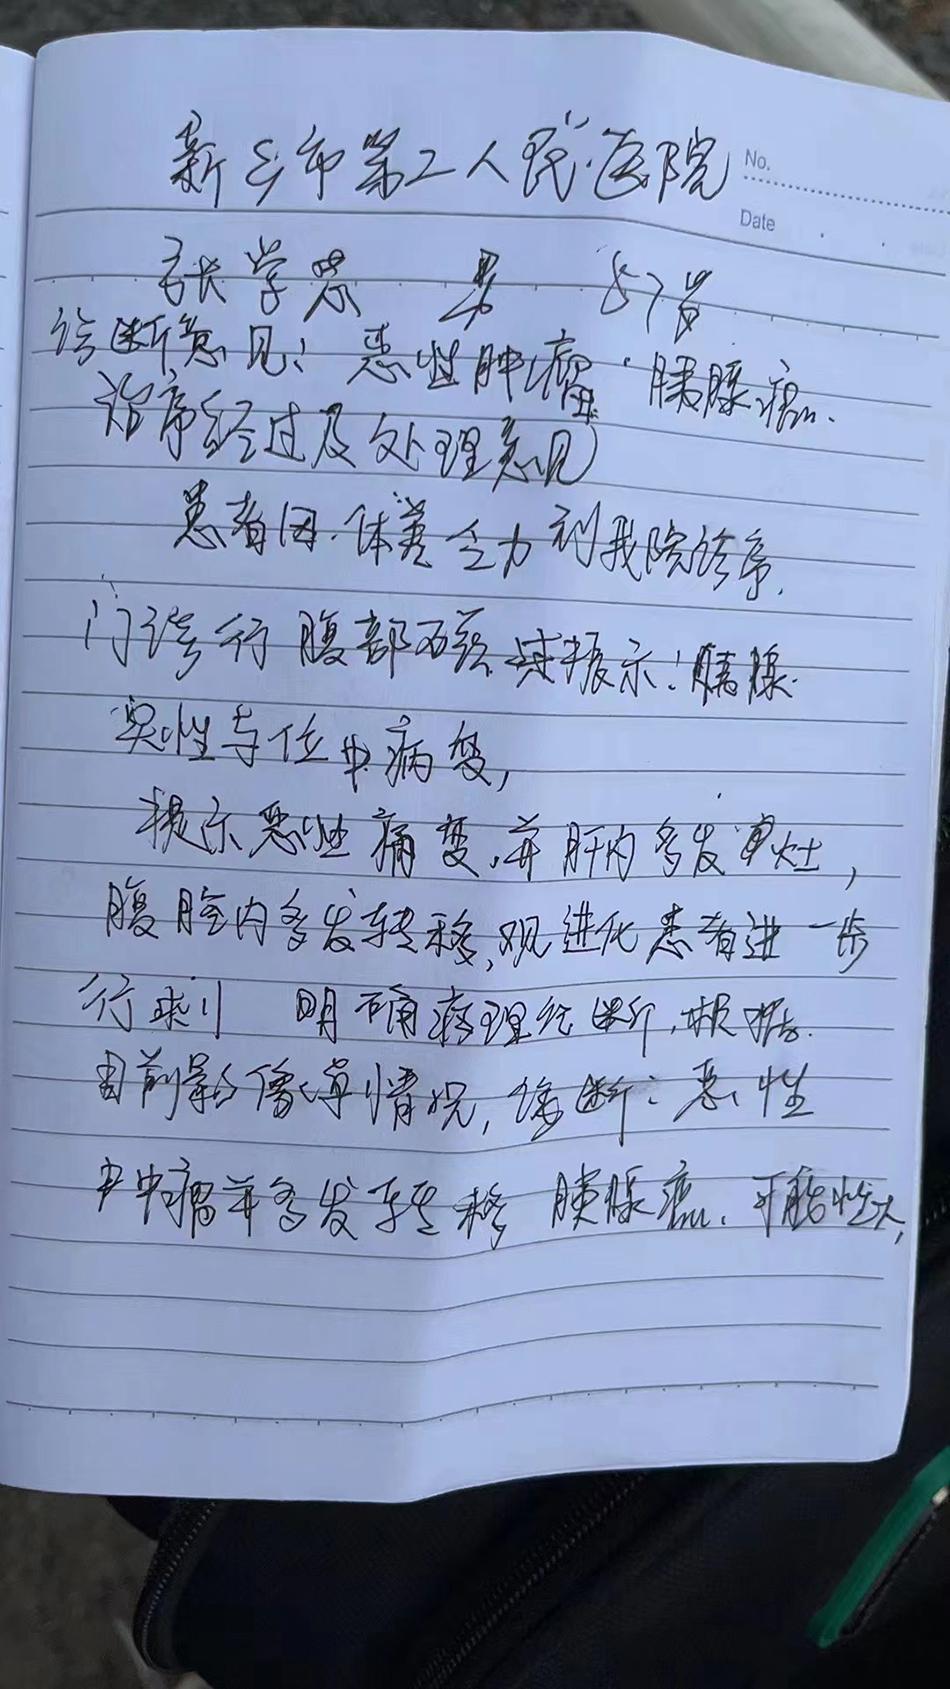 新乡市第二人民医院
No.
Date
张学思 男 57岁
诊断意见: 恶性肿瘤 胰腺癌.
治疗经过及处理意见
患者因体差乏力到我院诊疗.
门诊行腹部磁共振示: 胰腺
实性占位 病变,
提示恶性病变,并肝内多发 灶,
腹腔内多发转移, 进 患者进一步
行 明确病理诊断,根据
目前影像 情况,诊断: 恶性
肿瘤并多发转移 胰腺癌. 可能性大,